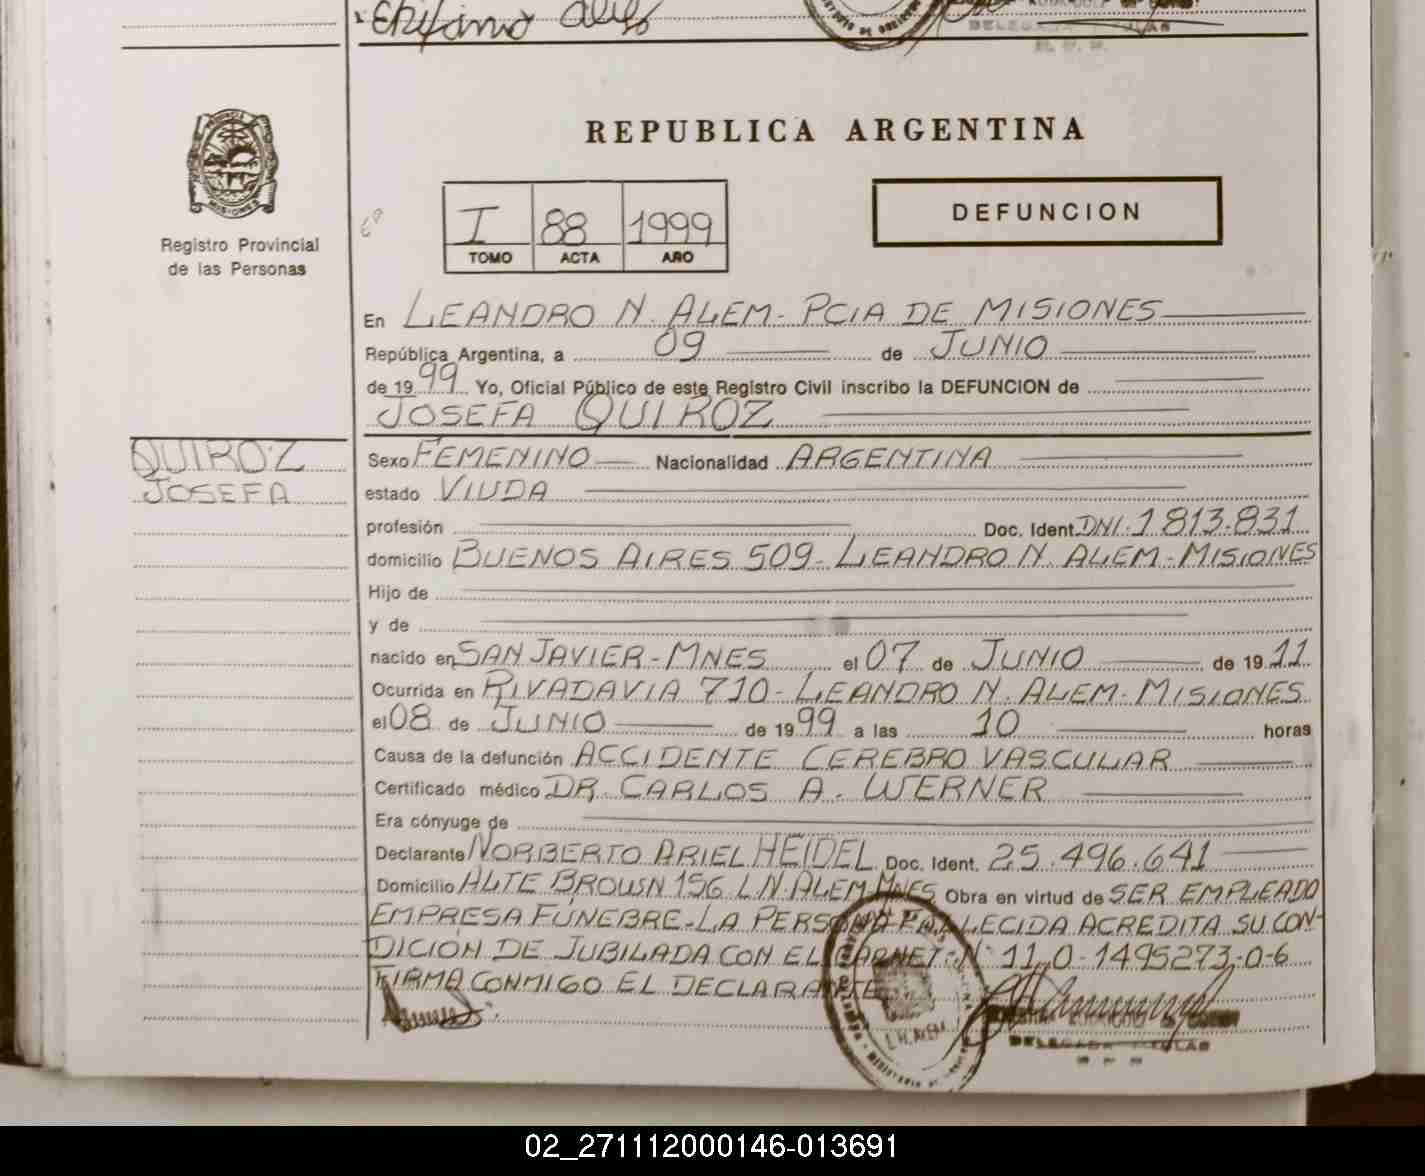 Registro Provincial
de las Personas
REPUBLICA ARGENTINA
I 88 1999
TOMO ACTA AÑO
DEFUNCION
En LEANDRO N. ALEM - PCIA DE MISIONES
República Argentina, a 09 de JUNIO
de 1999 Yo, Oficial Público de este Registro Civil inscribo la DEFUNCION de
JOSEFA QUIROZ
QUIROZ
JOSEFA
Sexo FEMENINO Nacionalidad ARGENTINA
estado VIUDA
profesión Doc. Ident. DNI. 1 813.831
domicilio BUENOS AIRES 509 - LEANDRO N. ALEM - MISIONES
Hijo de
y de
nacido en SAN JAVIER - MNES el 07 de JUNIO de 1911
Ocurrida en RIVADAVIA 710 - LEANDRO N. ALEM - MISIONES
el 08 de JUNIO de 1999 a las 10 horas
Causa de la defunción ACCIDENTE CEREBRO VASCULAR
Certificado médico DR. CARLOS A. WERNER
Era cónyuge de
Declarante NORBERTO ARIEL HEIDEL Doc. Ident. 25.496.641
Domicilio ALTE BROWN 156 L.N. ALEM MNES Obra en virtud de SER EMPLEADO
EMPRESA FUNEBRE - LA PERSONA FALLECIDA ACREDITA SU CON-
DICIÓN DE JUBILADA CON EL CARNET: N° 11-0-1495273-0-6
FIRMA CONMIGO EL DECLARANTE
L. N. ALEM
DELEGADA TITULAR
02_271112000146-013691